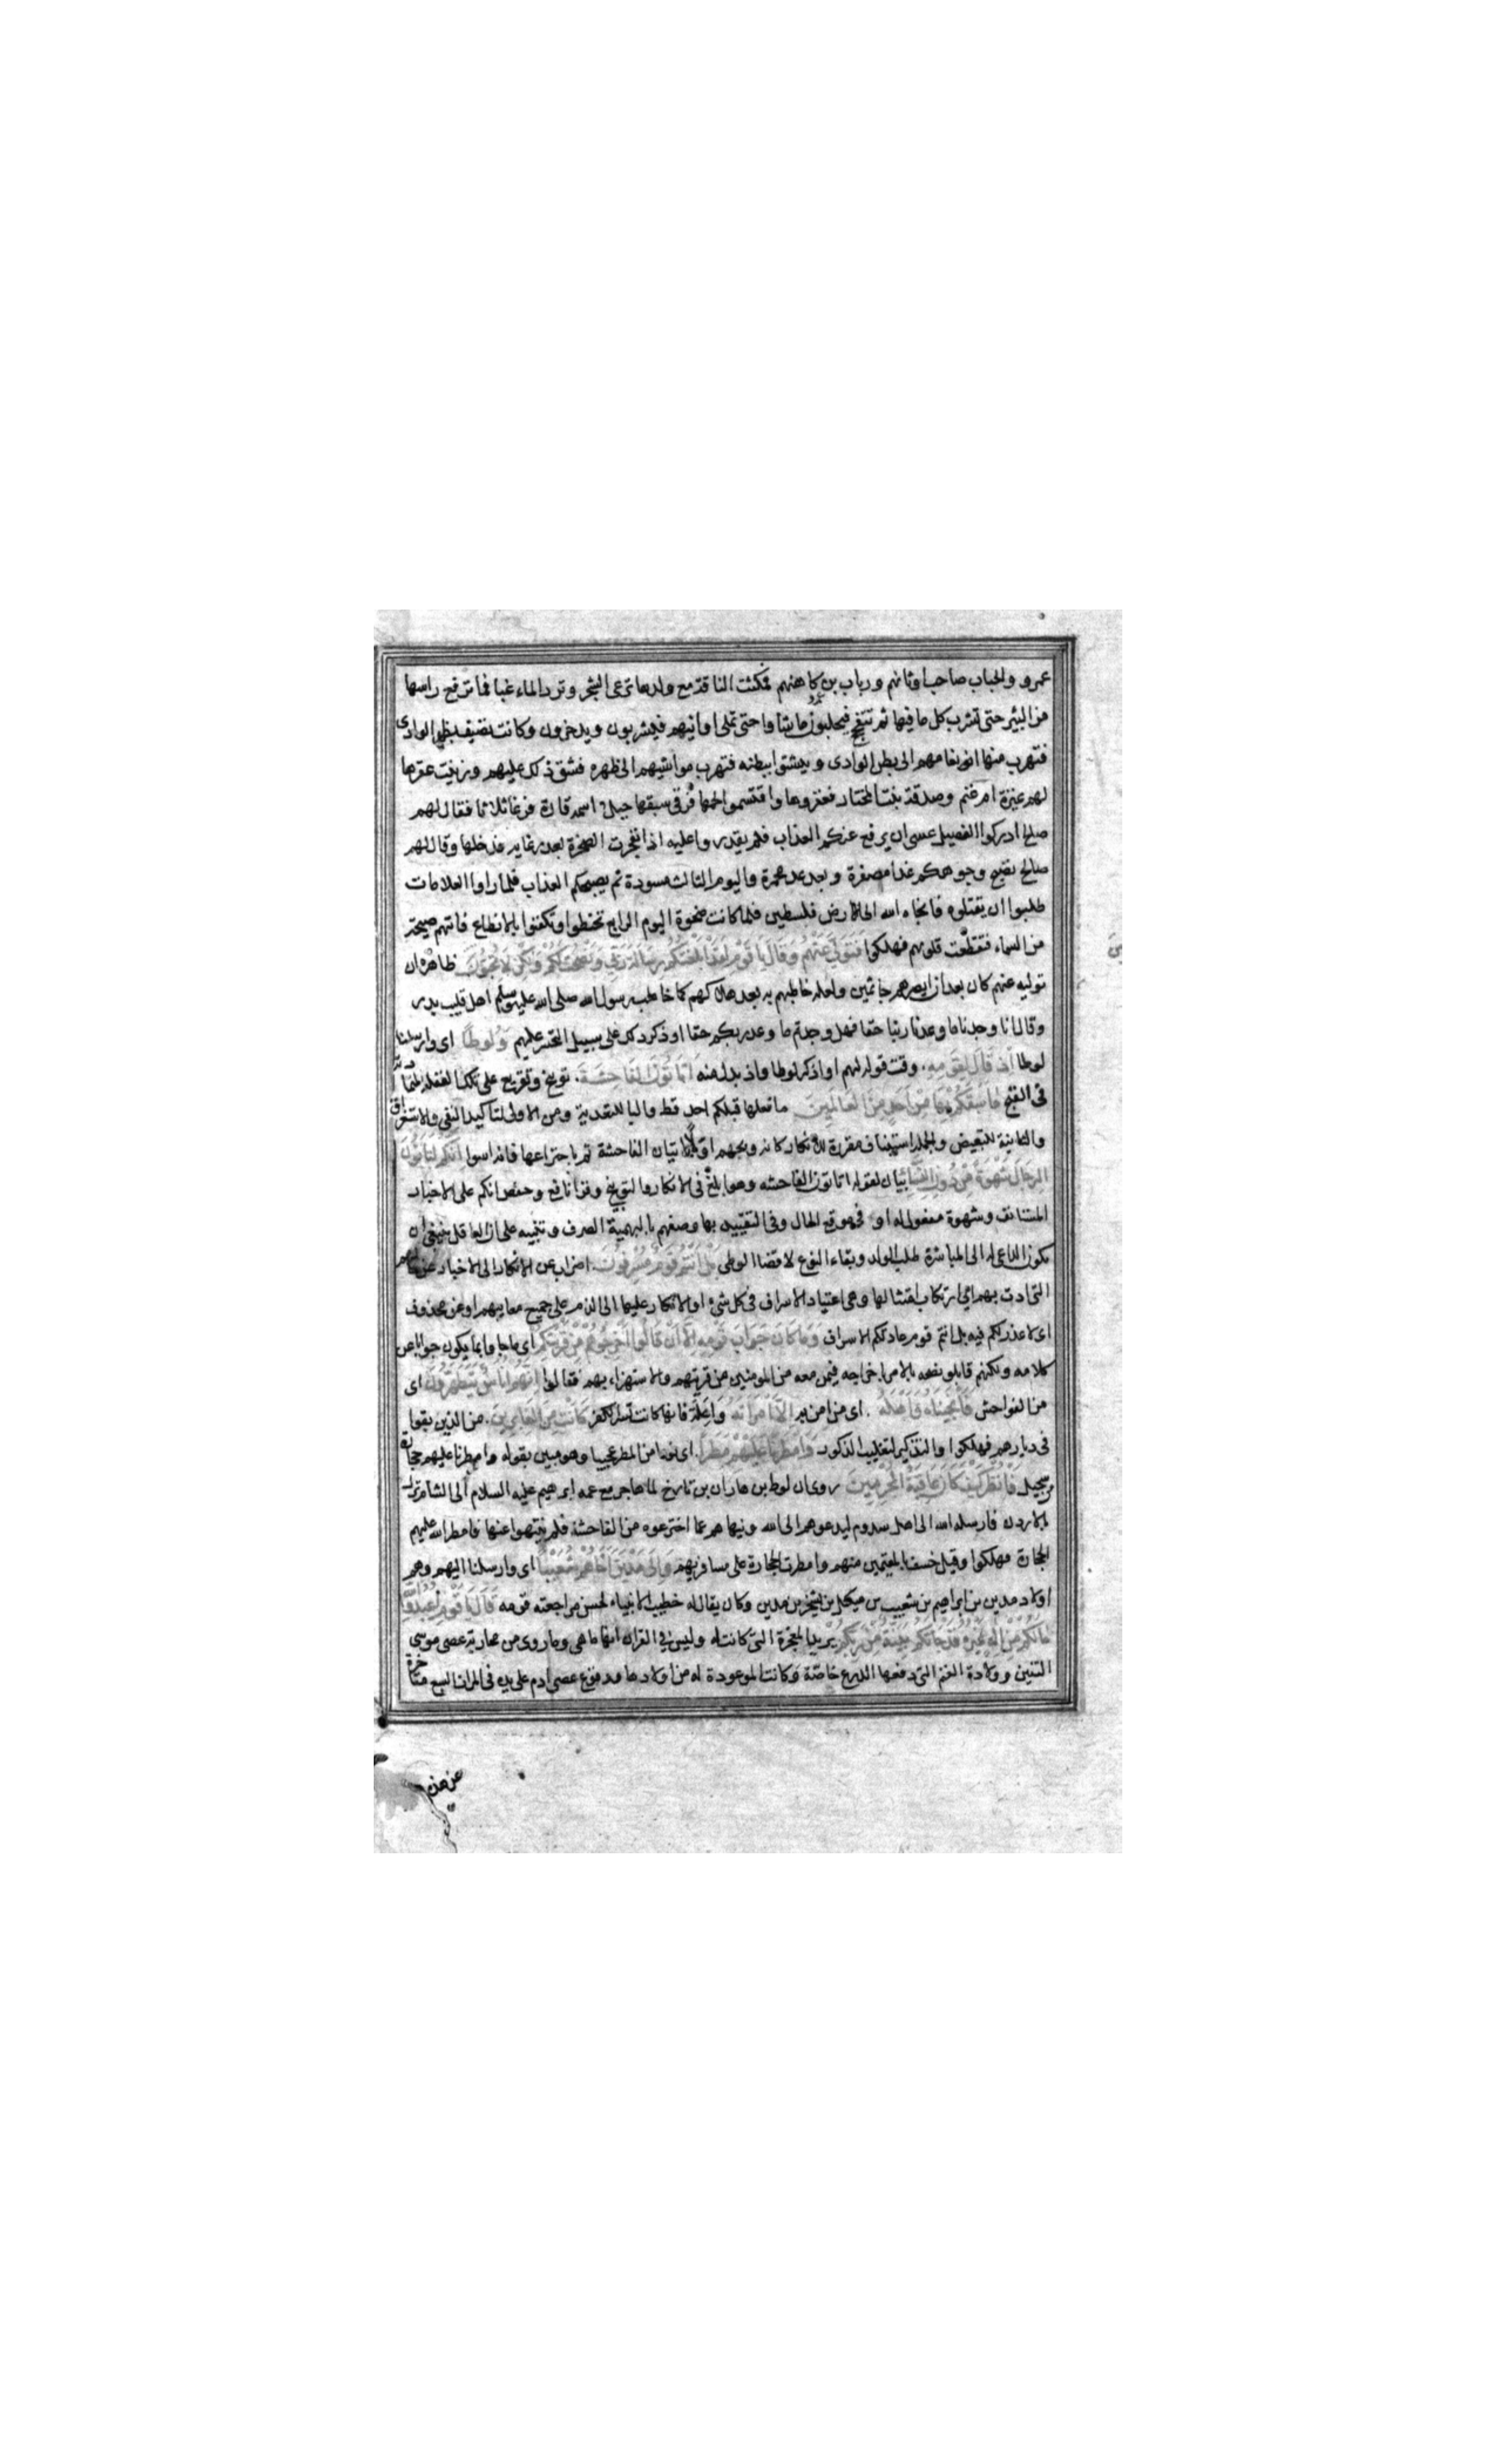 عمرو والحباب صاحب اوثانهم ورباب بن كاهنهم فمكثت الناقة مع ولدها ترعى الشجر وترد الماء غبا فما ترفع راسها
من البئر حتى تشرب كل ما فيها ثم تتفحج فيحلبون ما شاوا حتى تملى اوانيهم فيشربون ويدخرون وكانت تصيف بظهر الوادى
فتهرب منها انعامهم الى بطن الوادى وتشتوا ببطنه فتهرب مواشيهم الى ظهره فشق ذلك عليهم وزينت عقرها
لهم عنيزة ام غنم وصدقة بنت المختار فعقروها واقتسموا لحمها فرقى سقبها جبلا اسمه قارة فرغا ثلاثا فقال لهم
صالح ادركوا الفصيل عسى ان يرفع عنكم العذاب فلم يقدروا عليه اذ انفجرت الصخرة بعد رغايه فدخلها وقال لهم
صالح تصبح وجوهكم غدا مصفرة وبعد غد محمرة واليوم الثالث مسودة ثم يصبحكم العذاب فلما راوا العلامات
طلبوا ان يقتلوه فانجاه الله الى ارض فلسطين فلما كانت ضحوة اليوم الرابع تحنطوا وتكفنوا بالانطاع فاتتهم صيحة
من السماء فتقطعت قلوبهم فهلكوا فَتَوَلَّى عَنْهُمْ وَقَالَ يَا قَوْمِ لَقَدْ اَبْلَغْتُكُمْ رِسَالَةَ رَبِّى وَنَصَحْتُ لَكُمْ وَلَكِنْ لَا تُحِبُّونَ ظاهره ان
توليه عنهم كان بعد ان ابصرهم جاثمين ولعله خاطبهم به بعد هلاكهم كما خاطب رسول الله صلى الله عليه وسلم اهل قليب بدر
وقال انا وجدنا ما وعدنا ربنا حقا فهل وجدتم ما وعد ربكم حقا او ذكر ذلك على سبيل التحسر عليهم وَلُوطًا اى وارسلنا
لوطا اِذْ قَالَ لِقَوْمِهِ وقت قوله لهم او اذكر لوطا واذ بدل منه اَتَاْتُونَ الفَاحِشَةَ توبيخ وتقريع على تلك الفعلة المتمادية
فى القبح مَا سَبَقَكُمْ بِهَا مِنْ اَحَدٍ مِنَ العَالَمِينَ ما فعلها قبلكم احد قط والبا للتعدية ومن الاولى لتاكيد النفى والاستغراق
والثانية للتبعيض والجملة استيناف مقررة للانكار كانه وبخهم اولا باتيان الفاحشة ثم باختراعها فانه اسوا اَئِنَّكُمْ لَتَاْتُونَ
الرِّجَالَ شَهْوَةً مِنْ دُونِ النِّسَاءِ بيان لقوله اتاتون الفاحشه وهو ابلغ فى الانكار والتوبيخ وقرا نافع وحفص انكم على الاخبار
المستانف وشهوة مفعول له او فى موقع الحال وفى التقييد بها وصفهم بالبهيمية الصرف وتنبيه على ان العاقل ينبغى ان
يكون الداعى له الى المباشرة طلب الولد وبقاء النوع لا قضا الوطر بَلْ اَنْتُمْ قَوْمٌ مُسْرِفُونَ اضراب عن الانكار الى الاخبار عن حالهم
التى ادت بهم الى ارتكاب امثالها وهى اعتياد الاسراف فى كل شئ او الانكار عليها الى الذم على جميع معايبهم او عن محذوف
اى لا عذر لكم فيه بل انتم قوم عادتكم الاسراف وَمَا كَانَ جَوَابَ قَوْمِهِ اِلَّا اَنْ قَالُوا اَخْرِجُوهُمْ مِنْ قَرْيَتِكُمْ اى ما جاوا بما يكون جوابا عن
كلامه ولكنهم قابلوا نصحه بالامر باخراجه فيمن معه من المومنين من قريتهم والاستهزاء بهم فقالوا اِنَّهُمْ اُنَاسٌ يَتَطَهَّرُونَ اى
من الفواحش فَاَنْجَيْنَاهُ وَاَهْلَهُ اى من امن به اِلَّا امْرَاَتَهُ واعلة فانها كانت تسر الكفر كَانَتْ مِنَ الغَابِرِينَ من الذين بقوا
فى ديارهم فهلكوا والتذكير لتغليب الذكور وَاَمْطَرْنَا عَلَيْهِمْ مَطَرًا اى نوعا من المطر عجيبا وهو مبين بقوله وامطرنا عليهم حجارة
من سجيل فَانْظُرْ كَيْفَ كَانَ عَاقِبَةُ المُجْرِمِينَ روى ان لوط بن هاران بن تارخ لما هاجر مع عمه ابرهيم عليه السلام الى الشام نزل
بالاردن فارسله الله الى اهل سدوم ليدعوهم الى الله وينهاهم عما اخترعوه من الفاحشة فلم ينتهوا عنها فامطر الله عليهم
الحجارة فهلكوا وقيل خسف بالمقيمين منهم وامطرت الحجارة على مسافريهم وَاِلَى مَدْيَنَ اَخَاهُمْ شُعَيْبًا اى وارسلنا اليهم وهم
اولاد مدين بن ابراهيم بن شعيب بن ميكيل بن يشجر بن مدين وكان يقال له خطيب الانبياء لحسن مراجعته قومه قَالَ يَا قَوْمِ اعْبُدُوا اللَّهَ
مَا لَكُمْ مِنْ اِلَهٍ غَيْرُهُ قَدْ جَاءَتْكُمْ بَيِّنَةٌ مِنْ رَبِّكُمْ يريد المعجزة التى كانت له وليس فى القران انها ما هى وما روى من محاربة عصى موسى
التنين وولادة الغنم التى دفعها اليه الدرع خاصة وكانت الموعودة له من اولادها ووقوع عصى ادم على يده فى المرات السبع متاخرة
عن هذه